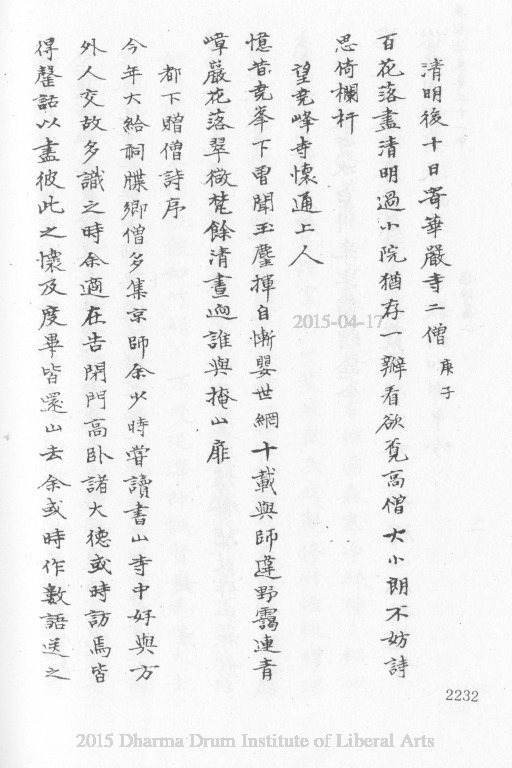 清明後十日寄華嚴寺二僧 庚子
百花落盡清明過小院猶存一瓣看欲覓高僧大小朗不妨詩
思倚欄杆
望堯峰寺懷通上人
憶昔堯峯下曾聞玉麈揮自慚嬰世網十載與師違野靄連青
嶂巖花落翠微梵餘清晝迥誰與掩山扉
都下贈僧詩序
今年大給祠牒鄉僧多集京師余少時嘗讀書山寺中好與方
外人交故多識之時余適在告閉門高臥諸大德或時訪焉皆
得罄話以盡彼此之懷及度畢皆還山去余或時作數語送之
2015-04-17
2232
2015 Dharma Drum Institute of Liberal Arts